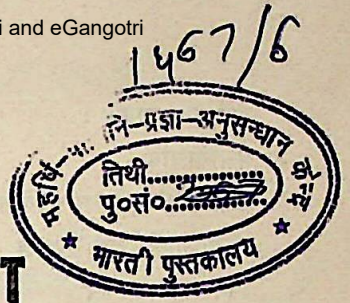 i and eGangotri
1467/6
महर्षि-पा नि-प्रज्ञा-अनुसन्धान केन्द्र
तिथी..............
पु०सं०..............
भारती पुस्तकालय
T